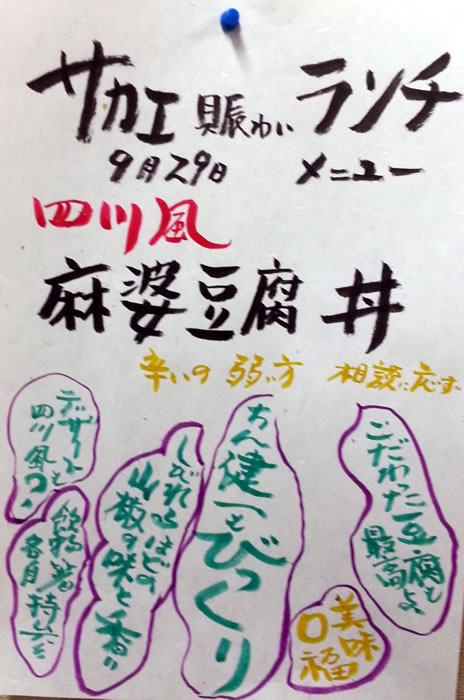 サカエ賑わいランチ
9月29日 メニュー
四川風
麻婆豆腐丼
辛いの弱い方 相談に応ず
こだわった豆腐も
最高よ、
美味
口福
ちん健一もびっくり
しびれるほどの
山椒の味と香り
デザートも
四川風の?
飲物等
各自持参を